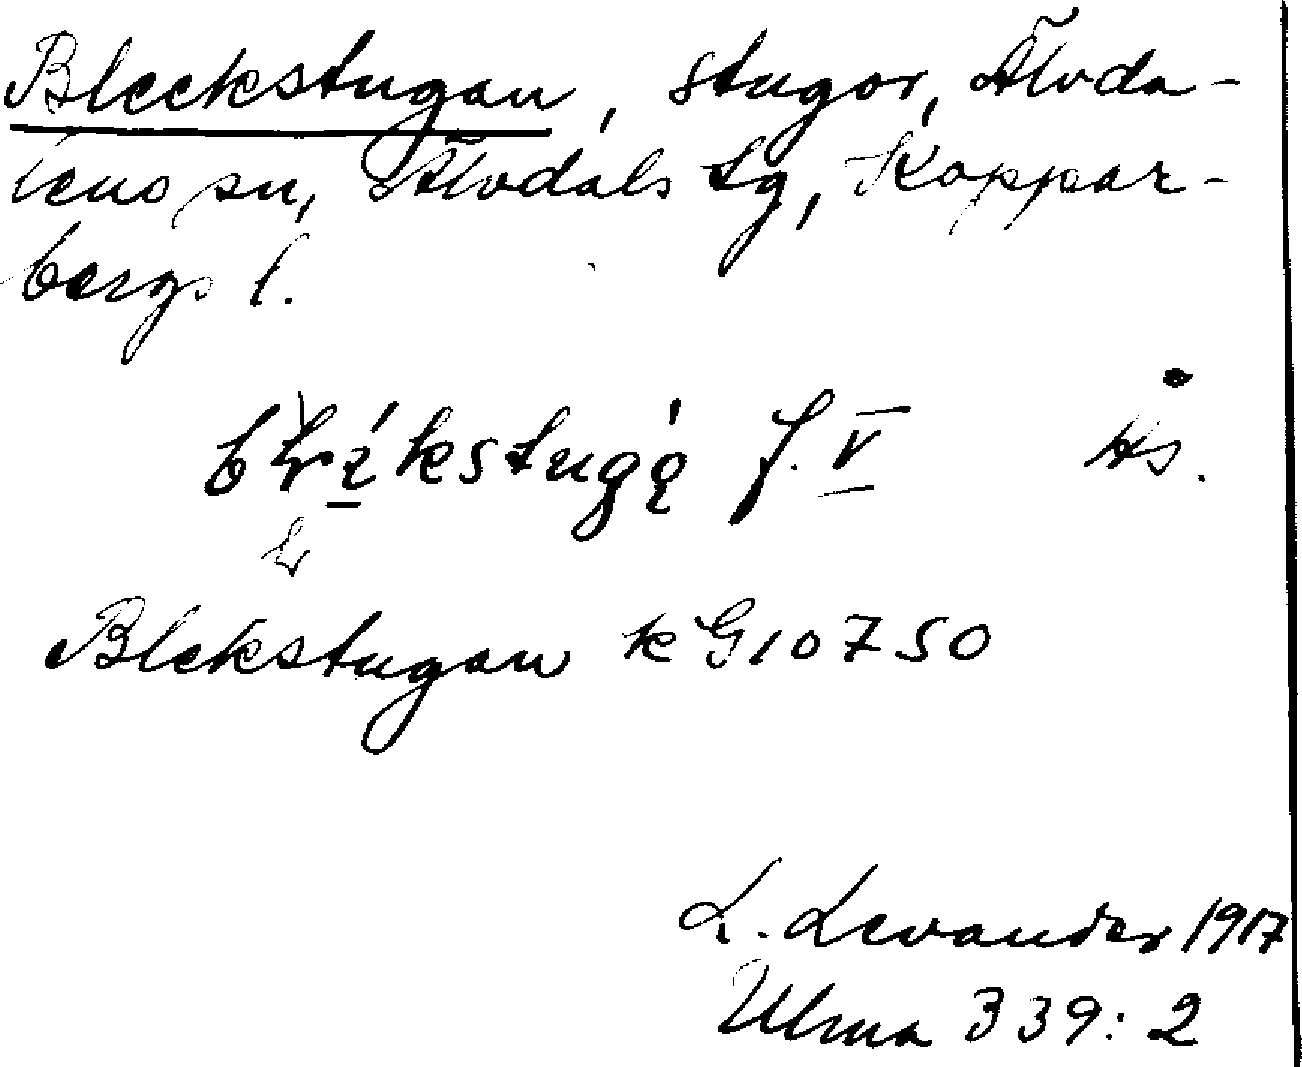 Bleckstugan, stugor, Älvda-
lens sn, Älvdals tg, Koppar-
bergs l.
f. V Ås.
Blekstugan k G10750
L. Levander 1917
Ulma 339:2